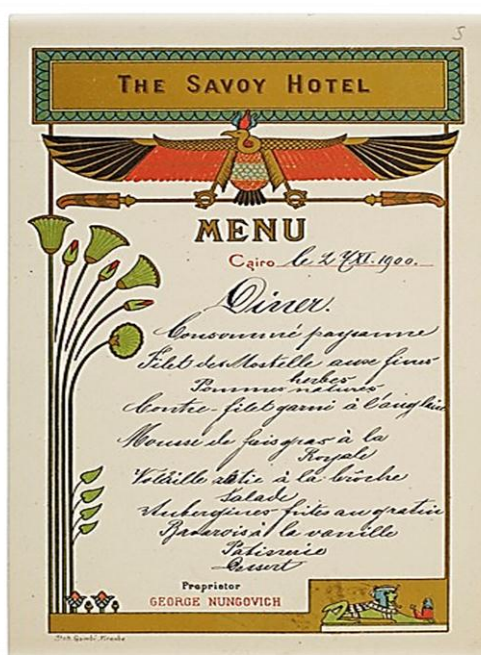 5
THE SAVOY HOTEL
MENU
Cairo le 2 XII. 1900.
Diner.
Consommé paysanne
Filet de Mostelle aux fines
herbes
Pommes natures
Contre-filet garni à l'anglaise
Mousse de foisgras à la
Royale
Volaille rôtie à la broche
Salade
Aubergines frites au gratin
Bavarois à la vanille
Patisserie
Dessert
Proprietor
GEORGE NUNGOVICH